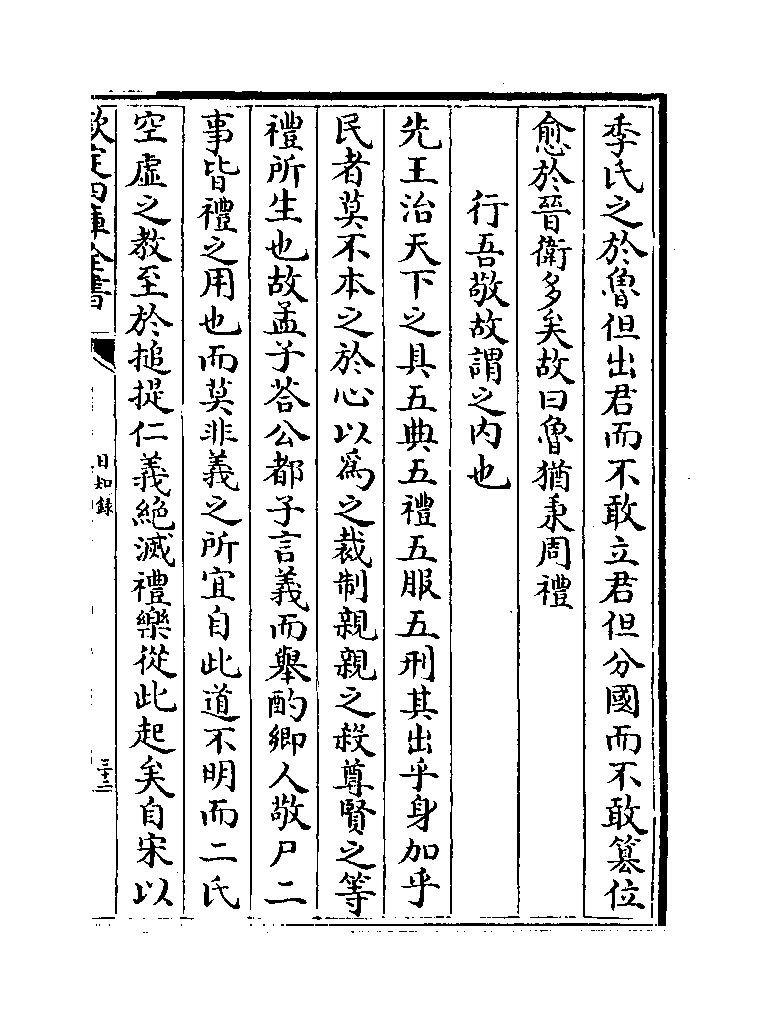 季氏之於魯但出君而不敢立君但分國而不敢簒位
愈於晉衛多矣故曰魯猶秉周禮
行吾敬故謂之内也
先王治天下之具五典五禮五服五刑其出乎身加乎
民者莫不本之於心以爲之裁制親親之殺尊賢之等
禮所生也故孟子荅公都子言義而舉酌鄉人敬尸二
事皆禮之用也而莫非義之所宜自此道不明而二氏
空虛之教至於搥提仁義絶滅禮樂從此起矣自宋以
欽定四庫全書
日知錄
三十二